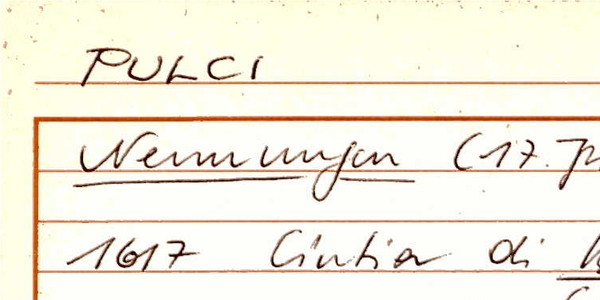 PULCI
Nennungen (17. J
1617 Cintia di